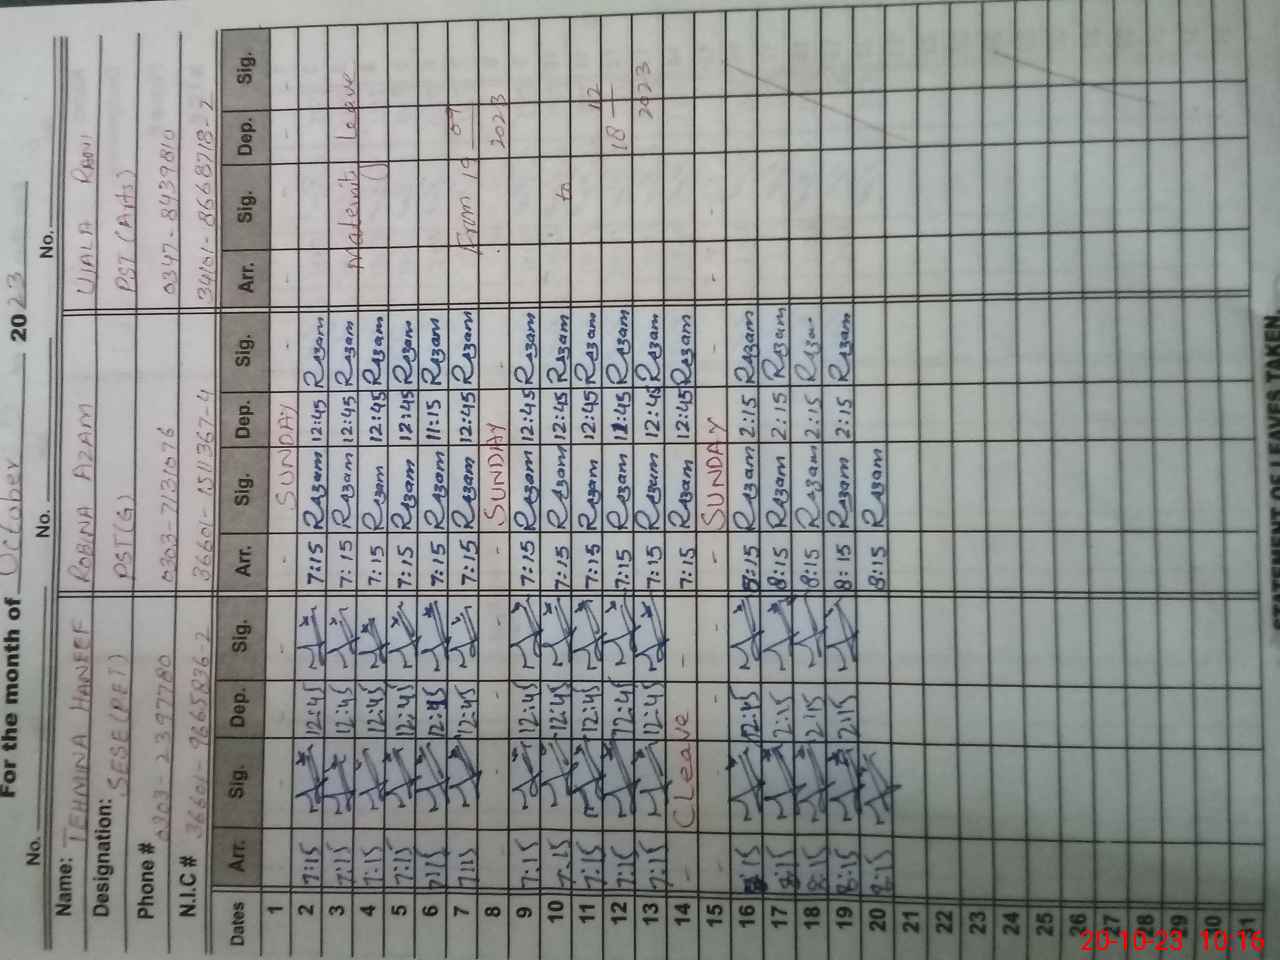 For the month of October 2023
No. No. No.
Name: TEHMINA HANEEF ROBINA AZAM
Designation: SESE (PET) PST(G) PST (Arts)
Phone # 0303-2397780 0303-7131076 0347-8439810
N.I.C # 36601-9665836-2 36601-1511367-4 34101-8668718-2
Dates Arr. Sig. Dep. Sig. Arr. Sig. Dep. Sig. Arr. Sig. Dep. Sig.
1 - - - SUNDAY - - - - -
2 7:15 12:45 7:15 Razam 12:45 Razam
3 7:15 12:45 7:15 Razam 12:45 Razam Maternity leave
4 7:15 12:45 7:15 Razam 12:45 Razam
5 7:15 12:45 7:15 Razam 12:45 Razam
6 7:15 12:45 7:15 Razam 11:15 Razam
7 7:15 12:45 7:15 Razam 12:45 Razam From 19 09
8 - - - SUNDAY - 2023
9 7:15 12:45 7:15 Razam 12:45 Razam
10 7:15 12:45 7:15 Razam 12:45 Razam to
11 7:15 12:45 7:15 Razam 12:45 Razam 12
12 7:15 12:45 7:15 Razam 12:45 Razam 18
13 7:15 12:45 7:15 Razam 12:45 Razam 2023
14 - C Leave - 7:15 Razam 12:45 Razam
15 - - - - SUNDAY - - - - -
16 8:15 12:45 8:15 Razam 2:15 Razam
17 8:15 2:15 8:15 Razam 2:15 Razam
18 8:15 2:15 8:15 Razam 2:15 Razam
19 8:15 2:15 8:15 Razam 2:15 Razam
20 8:15 8:15 Razam
21
22
23
24
25
26
27
28
29
30
31
STATEMENT OF LEAVES TAKEN
20-10-23 10:16